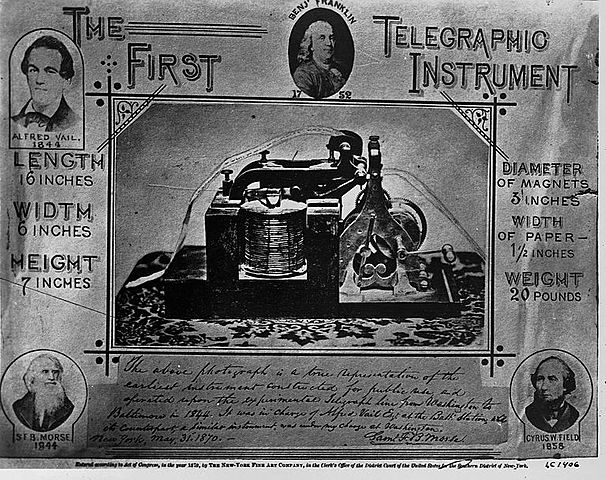 BENJ. FRANKLIN
1752
THE FIRST
TELEGRAPHIC INSTRUMENT
ALFRED VAIL.
1844
LENGTH
16 INCHES
WIDTH
6 INCHES
HEIGHT
7 INCHES
DIAMETER
OF MAGNETS
3 INCHES
WIDTH
OF PAPER—
1½ INCHES
WEIGHT
20 POUNDS
The above photograph is a true representation of the
earliest instrument constructed for public use, and
operated upon the experimental Telegraph line from Washington to
Baltimore in 1844. It was in charge of Alfred Vail Esq at the Balt. Station, while
its Counterpart, a similar instrument, was under my charge at Washington.
New York, May 31. 1870. —
Saml. F. B. Morse
S.F.B. MORSE
1844
CYRUS W. FIELD
1858
Entered according to Act of Congress, in the year 1870, by THE NEW-YORK FINE ART COMPANY, in the Clerk's Office of the District Court of the United States for the Southern District of New-York.
LC 1406